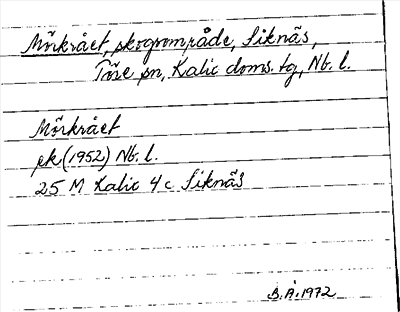 Mörkrået, skogsområde, Siknäs,
Töre sn, Kalix doms. tg, Nb. l.
Mörkrået
ek (1952) Nb. l.
25 M Kalix 4 c Siknäs
B. Å. 1972